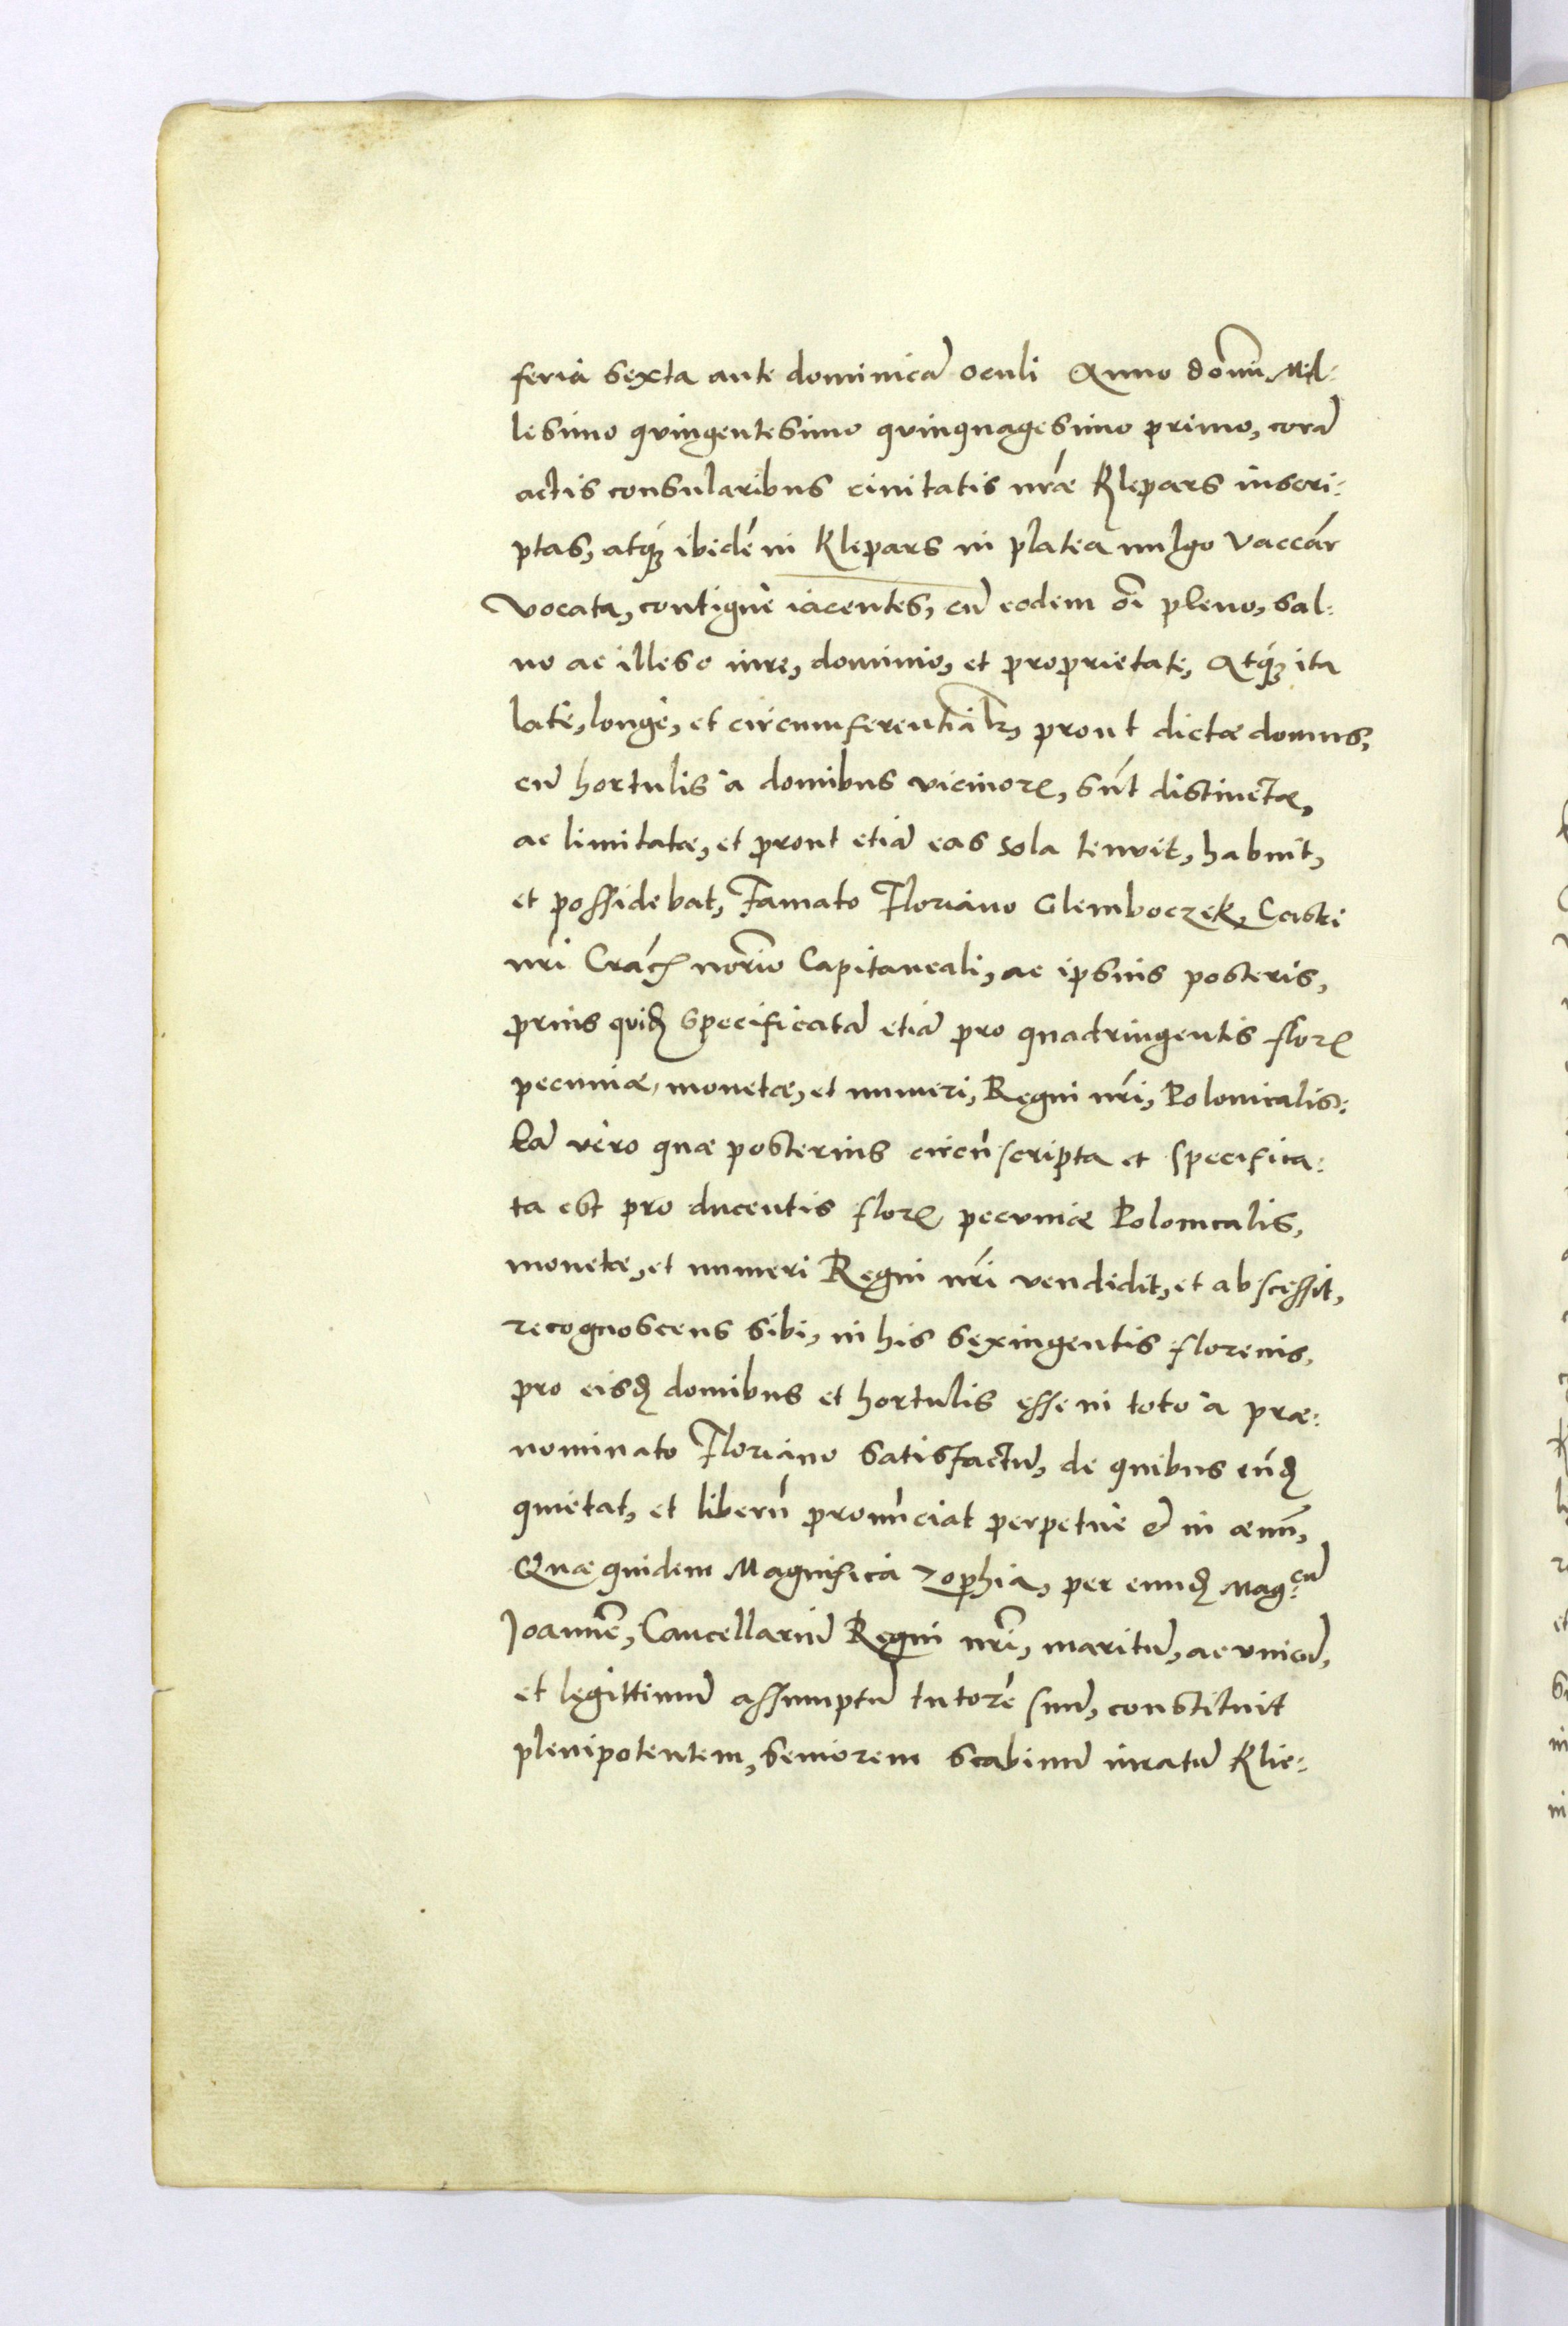 feria sexta ante dominicā oculi Anno domī Mil-
lesimo quingentesimo quinquagesimo primo, corā
actis consularibus ciuitatis nr̄ae Kleparz inscri-
ptas, atq́ʒ ibidē in Kleparz in platea uulgo Vaccār
vocata, contigue iacentes, cū eodem oī pleno, sal-
uo ac illeso iure, dominio, et proprietate, Atq́ʒ ita
late, longe, et circumferentialr̄, prout dictae domus,
cū hortulis a domibus vicinorꝝ, sūt distinctae,
ac limitatae, et prout etiā eas sola tenuit, habuit,
et possidebat, Famato Floriano Glemboczek, Castri
nrī Crac̄ norīo Capitaneali, ac ipsius posteris,
prius quidꝫ specificatā etiā pro quadringentis florꝝ
pecuniae, monetae, et numeri, Regni nrī, Polonicalis:
Eā vero quae posterius circūscripta et specifica-
ta est pro ducentis florꝝ pecuniae Polonicalis,
monetae, et numeri Regni nrī vendidit, et abscessit,
recognoscens sibi, in his sexingentis florenis,
pro eisdꝫ domibus et hortulis esse in toto a prae-
nominato Floriano satisfactū, de quibus eūdꝫ
quietat, et liberū pronūciat perpetue et in aeuū,
Quae quidem Magnifica Zophia, per eundꝫ Mag:cū
Joannē, Cancellariū Regni nrī, maritū, ac vnicū,
et legittimū assumptū tutorē suū, constituit
plenipotentem, seniorem scabinū iuratū Klie-